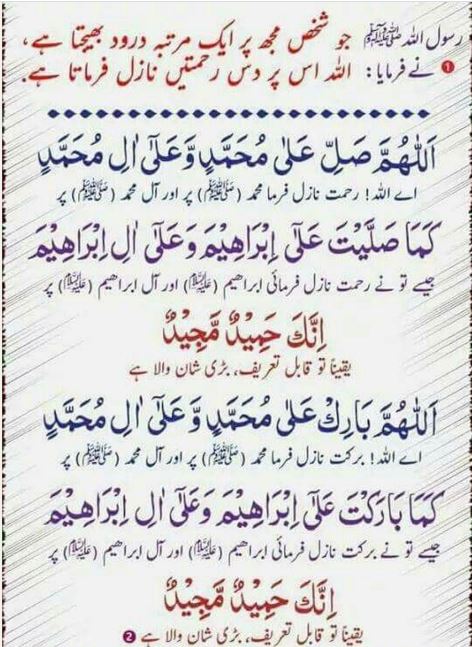 رسول اللہ ﷺ جو شخص مجھ پر ایک مرتبہ درود بھیجتا ہے،
❶ نے فرمایا: اللہ اس پر دس رحمتیں نازل فرماتا ہے.
اَللّٰهُمَّ صَلِّ عَلٰى مُحَمَّدٍ وَّعَلٰٓى اٰلِ مُحَمَّدٍ
اے اللہ! رحمت نازل فرما محمد (ﷺ) پر اور آل محمد (ﷺ) پر
كَمَا صَلَّيْتَ عَلٰٓى اِبْرَاهِيْمَ وَعَلٰٓى اٰلِ اِبْرَاهِيْمَ
جیسے تو نے رحمت نازل فرمائی ابراھیم (علیہ السلام) اور آل ابراھیم (علیہ السلام) پر
اِنَّكَ حَمِيْدٌ مَّجِيْدٌ
یقیناً تو قابل تعریف، بڑی شان والا ہے
اَللّٰهُمَّ بَارِكْ عَلٰى مُحَمَّدٍ وَّ عَلٰٓى اٰلِ مُحَمَّدٍ
اے اللہ! برکت نازل فرما محمد (ﷺ) پر اور آل محمد (ﷺ) پر
كَمَا بَارَكْتَ عَلٰٓى اِبْرَاهِيْمَ وَعَلٰٓى اٰلِ اِبْرَاهِيْمَ
جیسے تو نے برکت نازل فرمائی ابراھیم (علیہ السلام) اور آل ابراھیم (علیہ السلام) پر
اِنَّكَ حَمِيْدٌ مَّجِيْدٌ
یقیناً تو قابل تعریف، بڑی شان والا ہے ❷